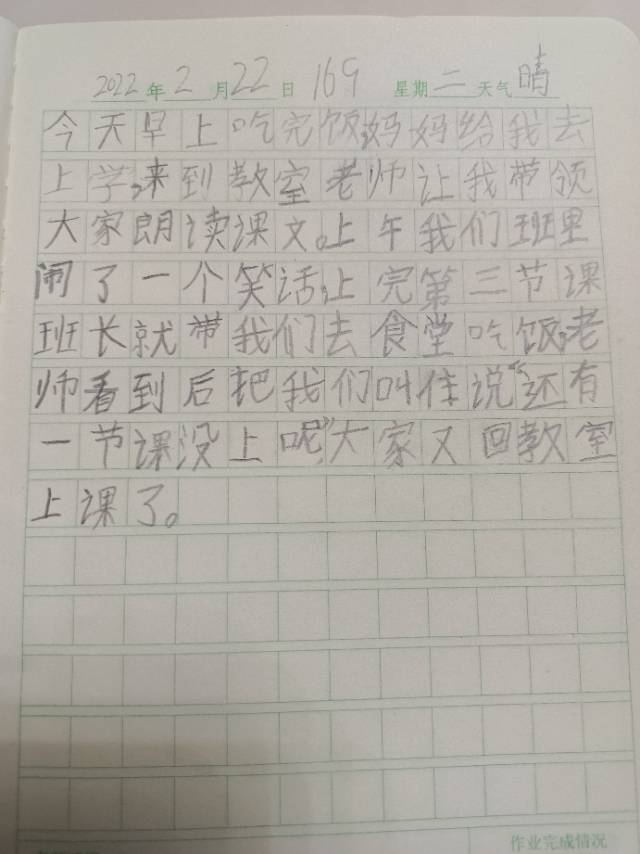 2022年2月22日 169 星期二天气晴
今天早上吃完饭,妈妈给我去
上学,来到教室老师让我带领
大家朗读课文。上午我们班里
闹了一个笑话,上完第三节课
班长就带我们去食堂吃饭,老
师看到后把我们叫住说“还有
一节课没上呢”,大家又回教室
上课了。
作业完成情况